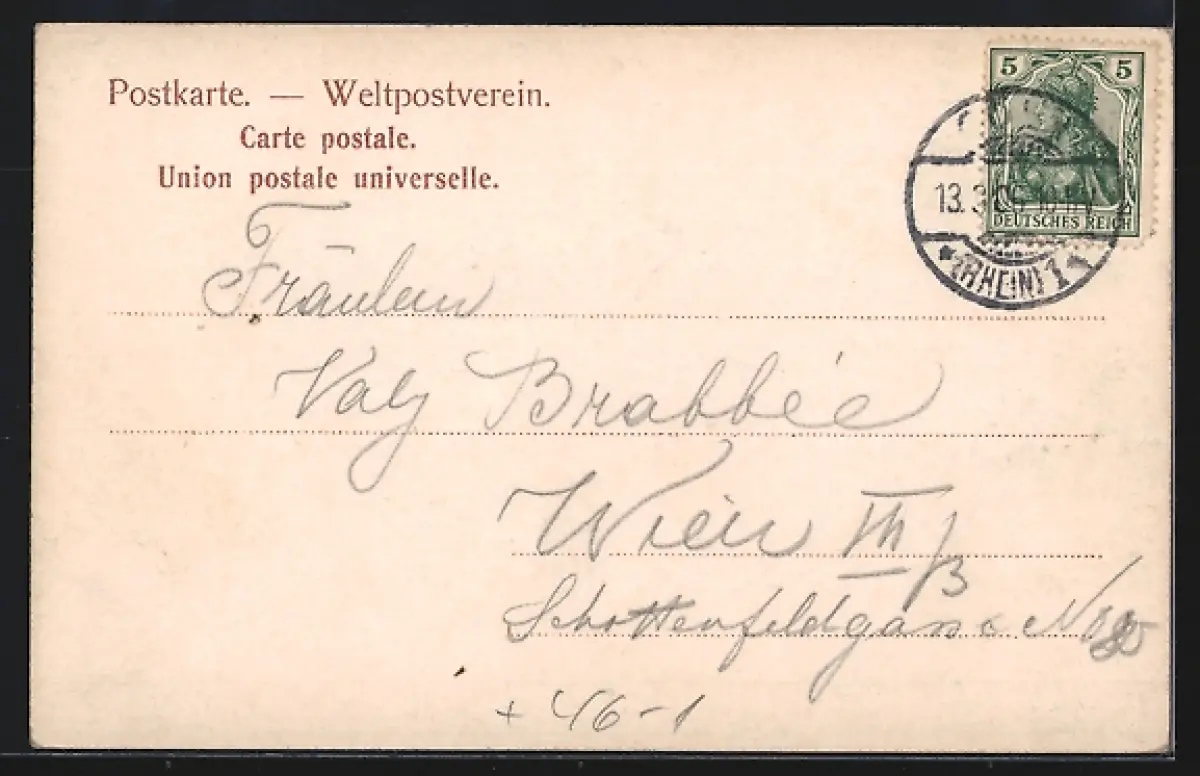 Postkarte. — Weltpostverein.
Carte postale.
Union postale universelle.
5 5
DEUTSCHES REICH
13. 3
(RHEIN) 1
Fräulein
Valy Brabbée
Wien
Schottenfeldgasse
+ 46-1